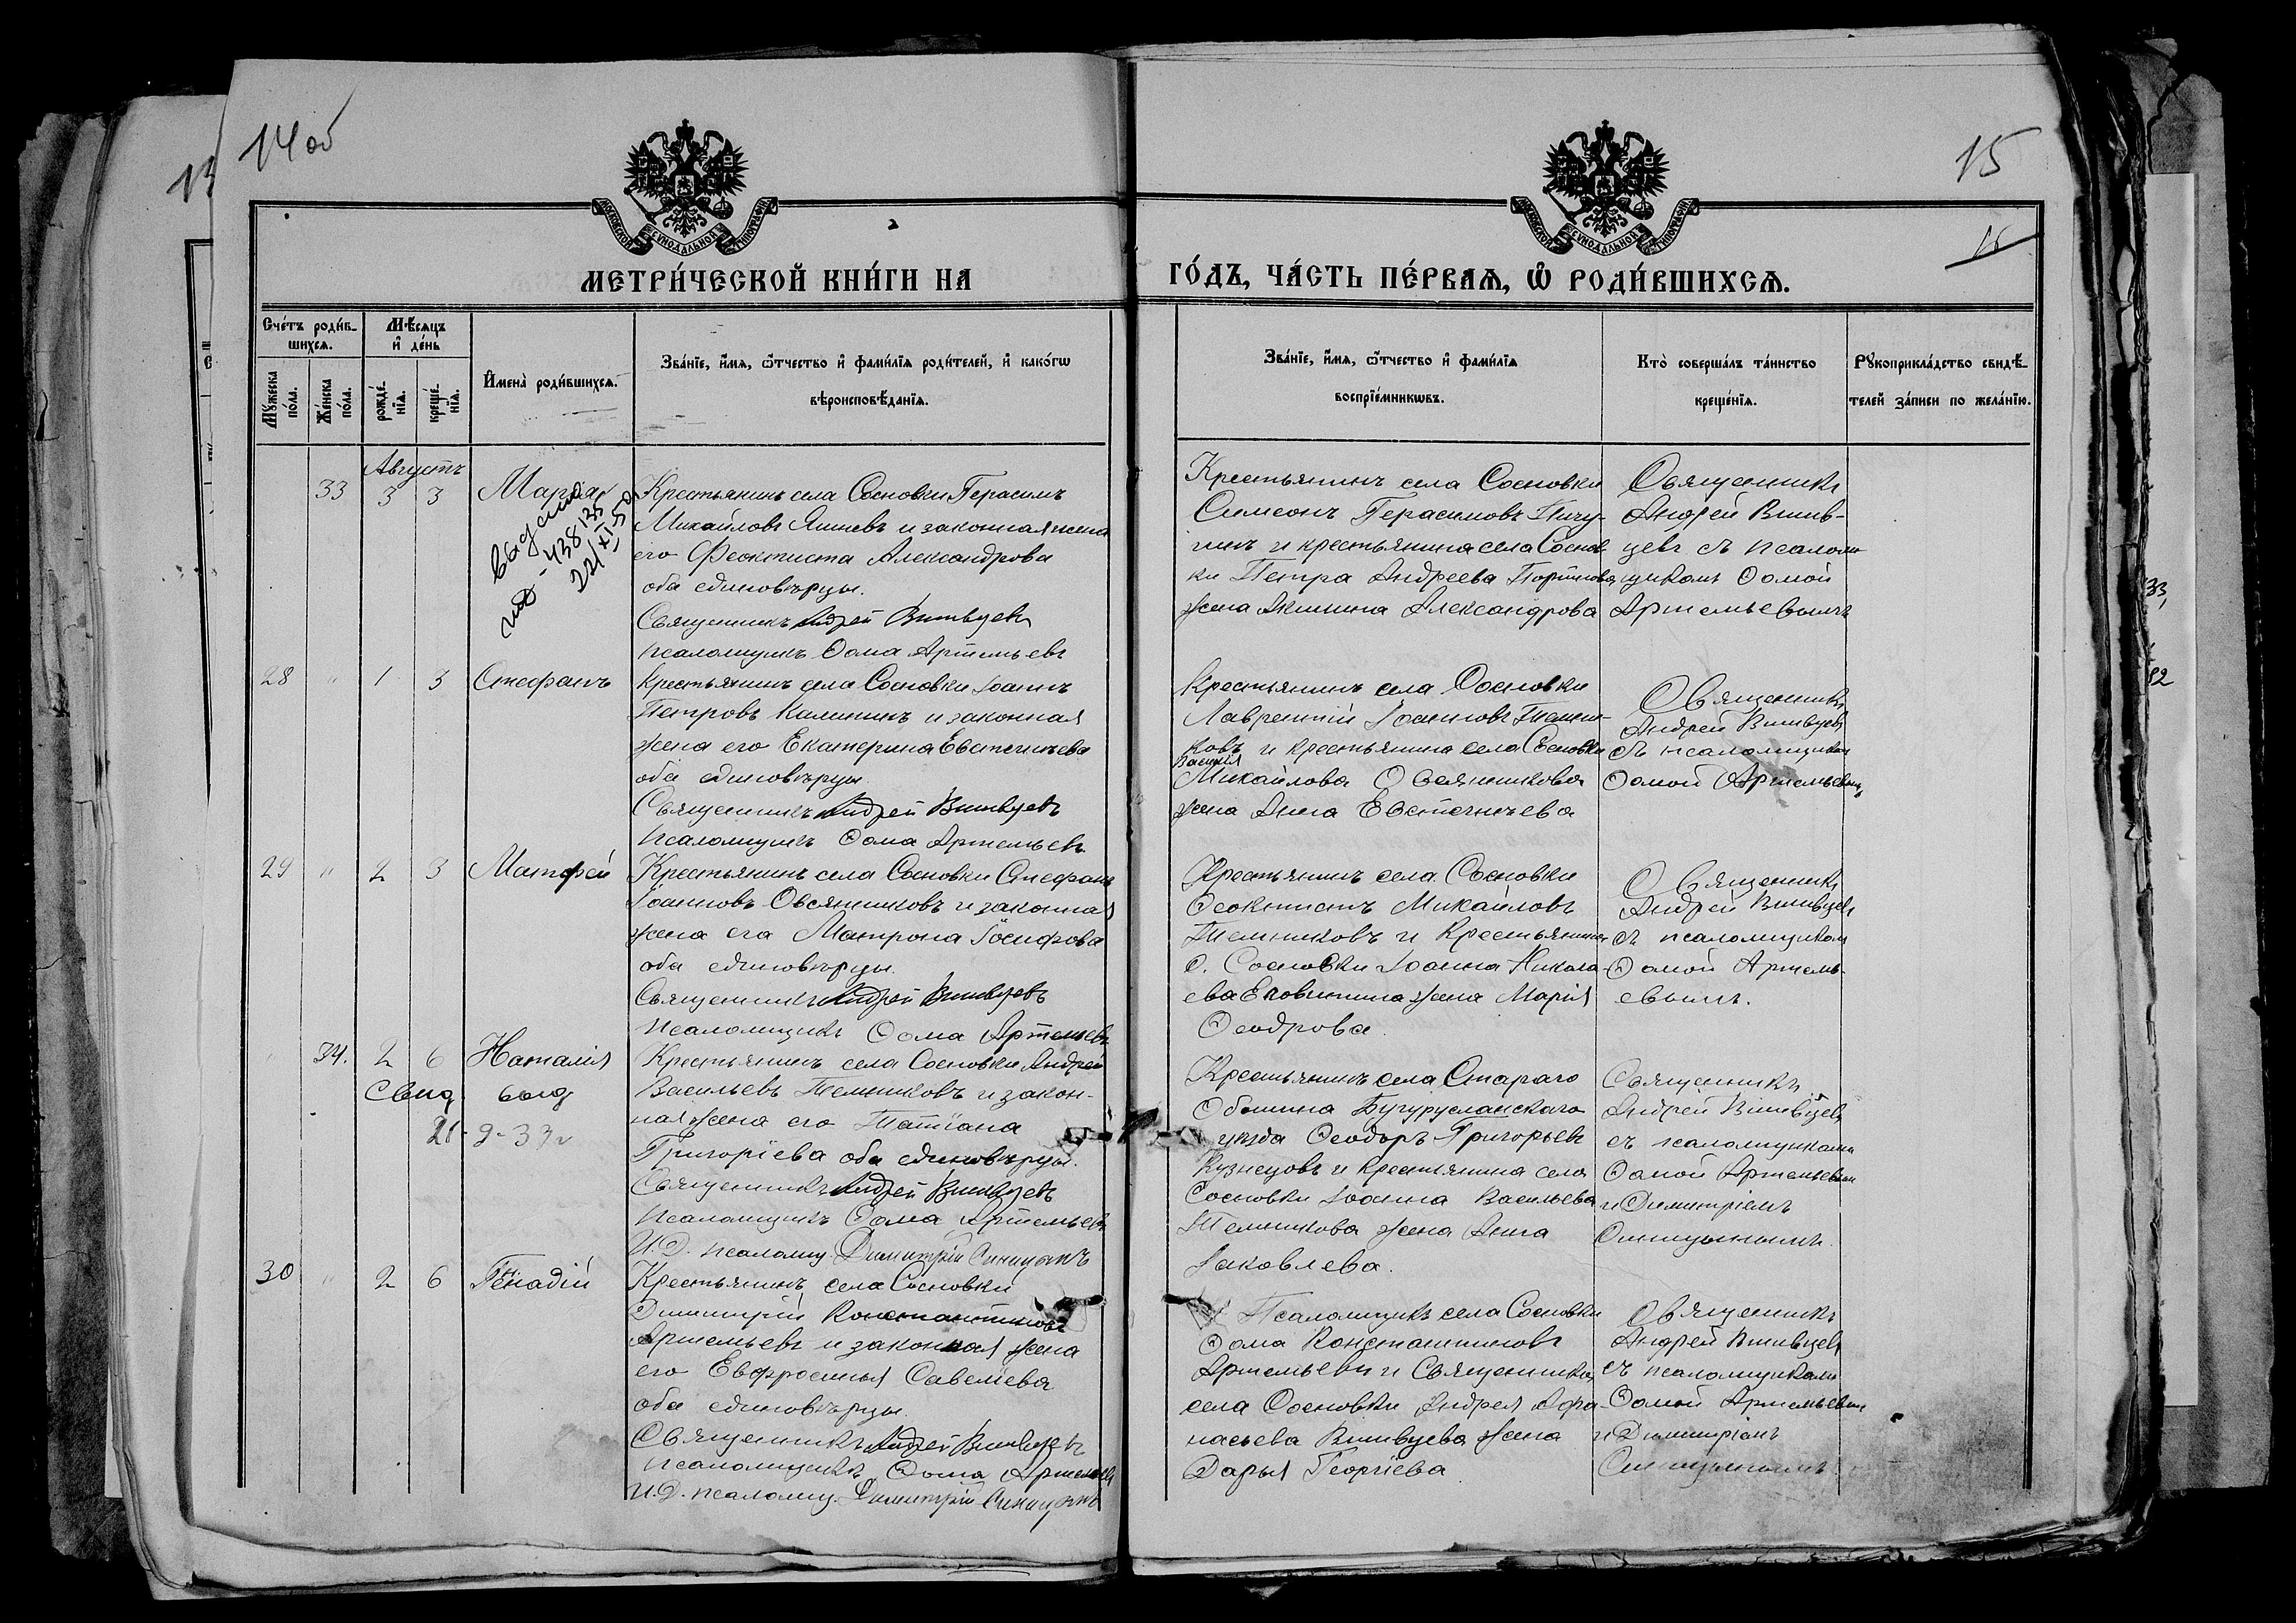 14 об
15
15
13
МОСКОВСКОЙ СѴНОДАЛЬНОЙ ТИПОГРАФІИ
МОСКОВСКОЙ СѴНОДАЛЬНОЙ ТИПОГРАФІИ
МЕТРИ́ЧЕСКОЙ КНИ́ГИ НА
ГО́ДЪ, ЧА́СТЬ ПЕ́РВАѦ, Ѡ҆ РОДИ́ВШИХСѦ.
Сче́тъ роди́в-
шихсѧ.
Мꙋ́жеска по́ла.
Же́нска по́ла.
Мѣ́сѧцъ
и҆ де́нь
рожде́-
нїѧ.
креще́-
нїѧ.
И҆мена̀ роди́вшихсѧ.
Зва́нїе, и҆́мѧ, ѻ҆́тчество и҆ фами́лїѧ роди́телей, и҆ како́гѡ
вѣроисповѣ́данїѧ.
Зва́нїе, и҆́мѧ, ѻ҆́тчество и҆ фами́лїѧ
воспрїе́мникѡвъ.
Кто̀ соверша́лъ та́инство
креще́нїѧ.
Рꙋкоприкла́дство свидѣ́-
телей за́писи по жела́нїю.
Августъ
33 3 3 Марія
438135
22/XI-50
Крестьянинъ села Сосновки Герасимъ
Михайловъ Яшневъ и законная жена
его Феоктиста Александрова
оба единовѣрцы.
Священникъ Андрей Вшивцевъ
псаломщикъ Ѳома Артемьевъ
Крестьянинъ села Сосновки
Симеонъ Герасимовъ Пичу-
гинъ и крестьянина села Соснов-
ки Петра Андреева Портнова
жена Акилина Александрова
Священникъ
Андрей Вшив-
цевъ съ псалом-
щикомъ Ѳомой
Артемьевымъ
28 " 1 3 Стефанъ
Крестьянинъ села Сосновки Іоаннъ
Петровъ Калининъ и законная
жена его Екатерина Евстигнѣева
оба единовѣрцы
Священникъ Андрей Вшивцевъ
Псаломщикъ Ѳома Артемьевъ
Крестьянинъ села Сосновки
Лаврентій Іоанновъ Темни-
ковъ и крестьянина села Сосновки
Василія
Михайлова Овсянникова
жена Анна Евстигнѣева
Священникъ
Андрей Вшивцевъ
съ псаломщикомъ
Ѳомой Артемьевымъ
29 " 2 3 Матфей
Крестьянинъ села Сосновки Стефанъ
Іоанновъ Овсянниковъ и законная
жена его Матрона Іосифова
оба единовѣрцы.
Священникъ Андрей Вшивцевъ
Псаломщикъ Ѳома Артемьевъ
Крестьянинъ села Сосновки
Ѳеоктистъ Михайловъ
Темниковъ и Крестьянина
с. Сосновки Іоанна Никола-
ева жена Марія
Ѳеодрова
Священникъ
Андрей Вшивцевъ
съ псаломщикомъ
Ѳомой Артемь-
евымъ.
" 34. 2 6 Наталія
Свид выд
21-9-33 г
Крестьянинъ села Сосновки Андрей
Васильевъ Темниковъ и закон-
ная жена его Татіана
Григоріева оба единовѣрцы.
Священникъ Андрей Вшивцевъ
Псаломщикъ Ѳома Артемьевъ
И.Д. псаломщ. Димитрій Синицынъ
Крестьянинъ села Стараго
Бугурусланскаго
уѣзда Ѳеодоръ Григорьевъ
Кузнецовъ и крестьянина села
Сосновки Іоанна Васильева
Темникова жена Анна
Іаковлева.
Священникъ
Андрей Вшивцевъ
съ псаломщиками
Ѳомой Артемьевымъ
и Димитріемъ
Синицынымъ.
30 " 2 6 Генадій
Крестьянинъ села Сосновки
Димитрій Константиновъ
Артемьевъ и законная жена
его Евфросинья Савеліева
оба единовѣрцы.
Священникъ Андрей Вшивцевъ
псаломщикъ Ѳома Артемьевъ
И.Д. псаломщ. Димитрій Синицынъ
Псаломщикъ села Сосновки
Ѳома Константиновъ
Артемьевъ и Священника
села Сосновки Андрея Афа-
насьева Вшивцева жена
Дарья Георгіева
Священникъ
Андрей Вшивцевъ
съ псаломщиками
Ѳомой Артемьевымъ
и Димитріемъ
Синицынымъ